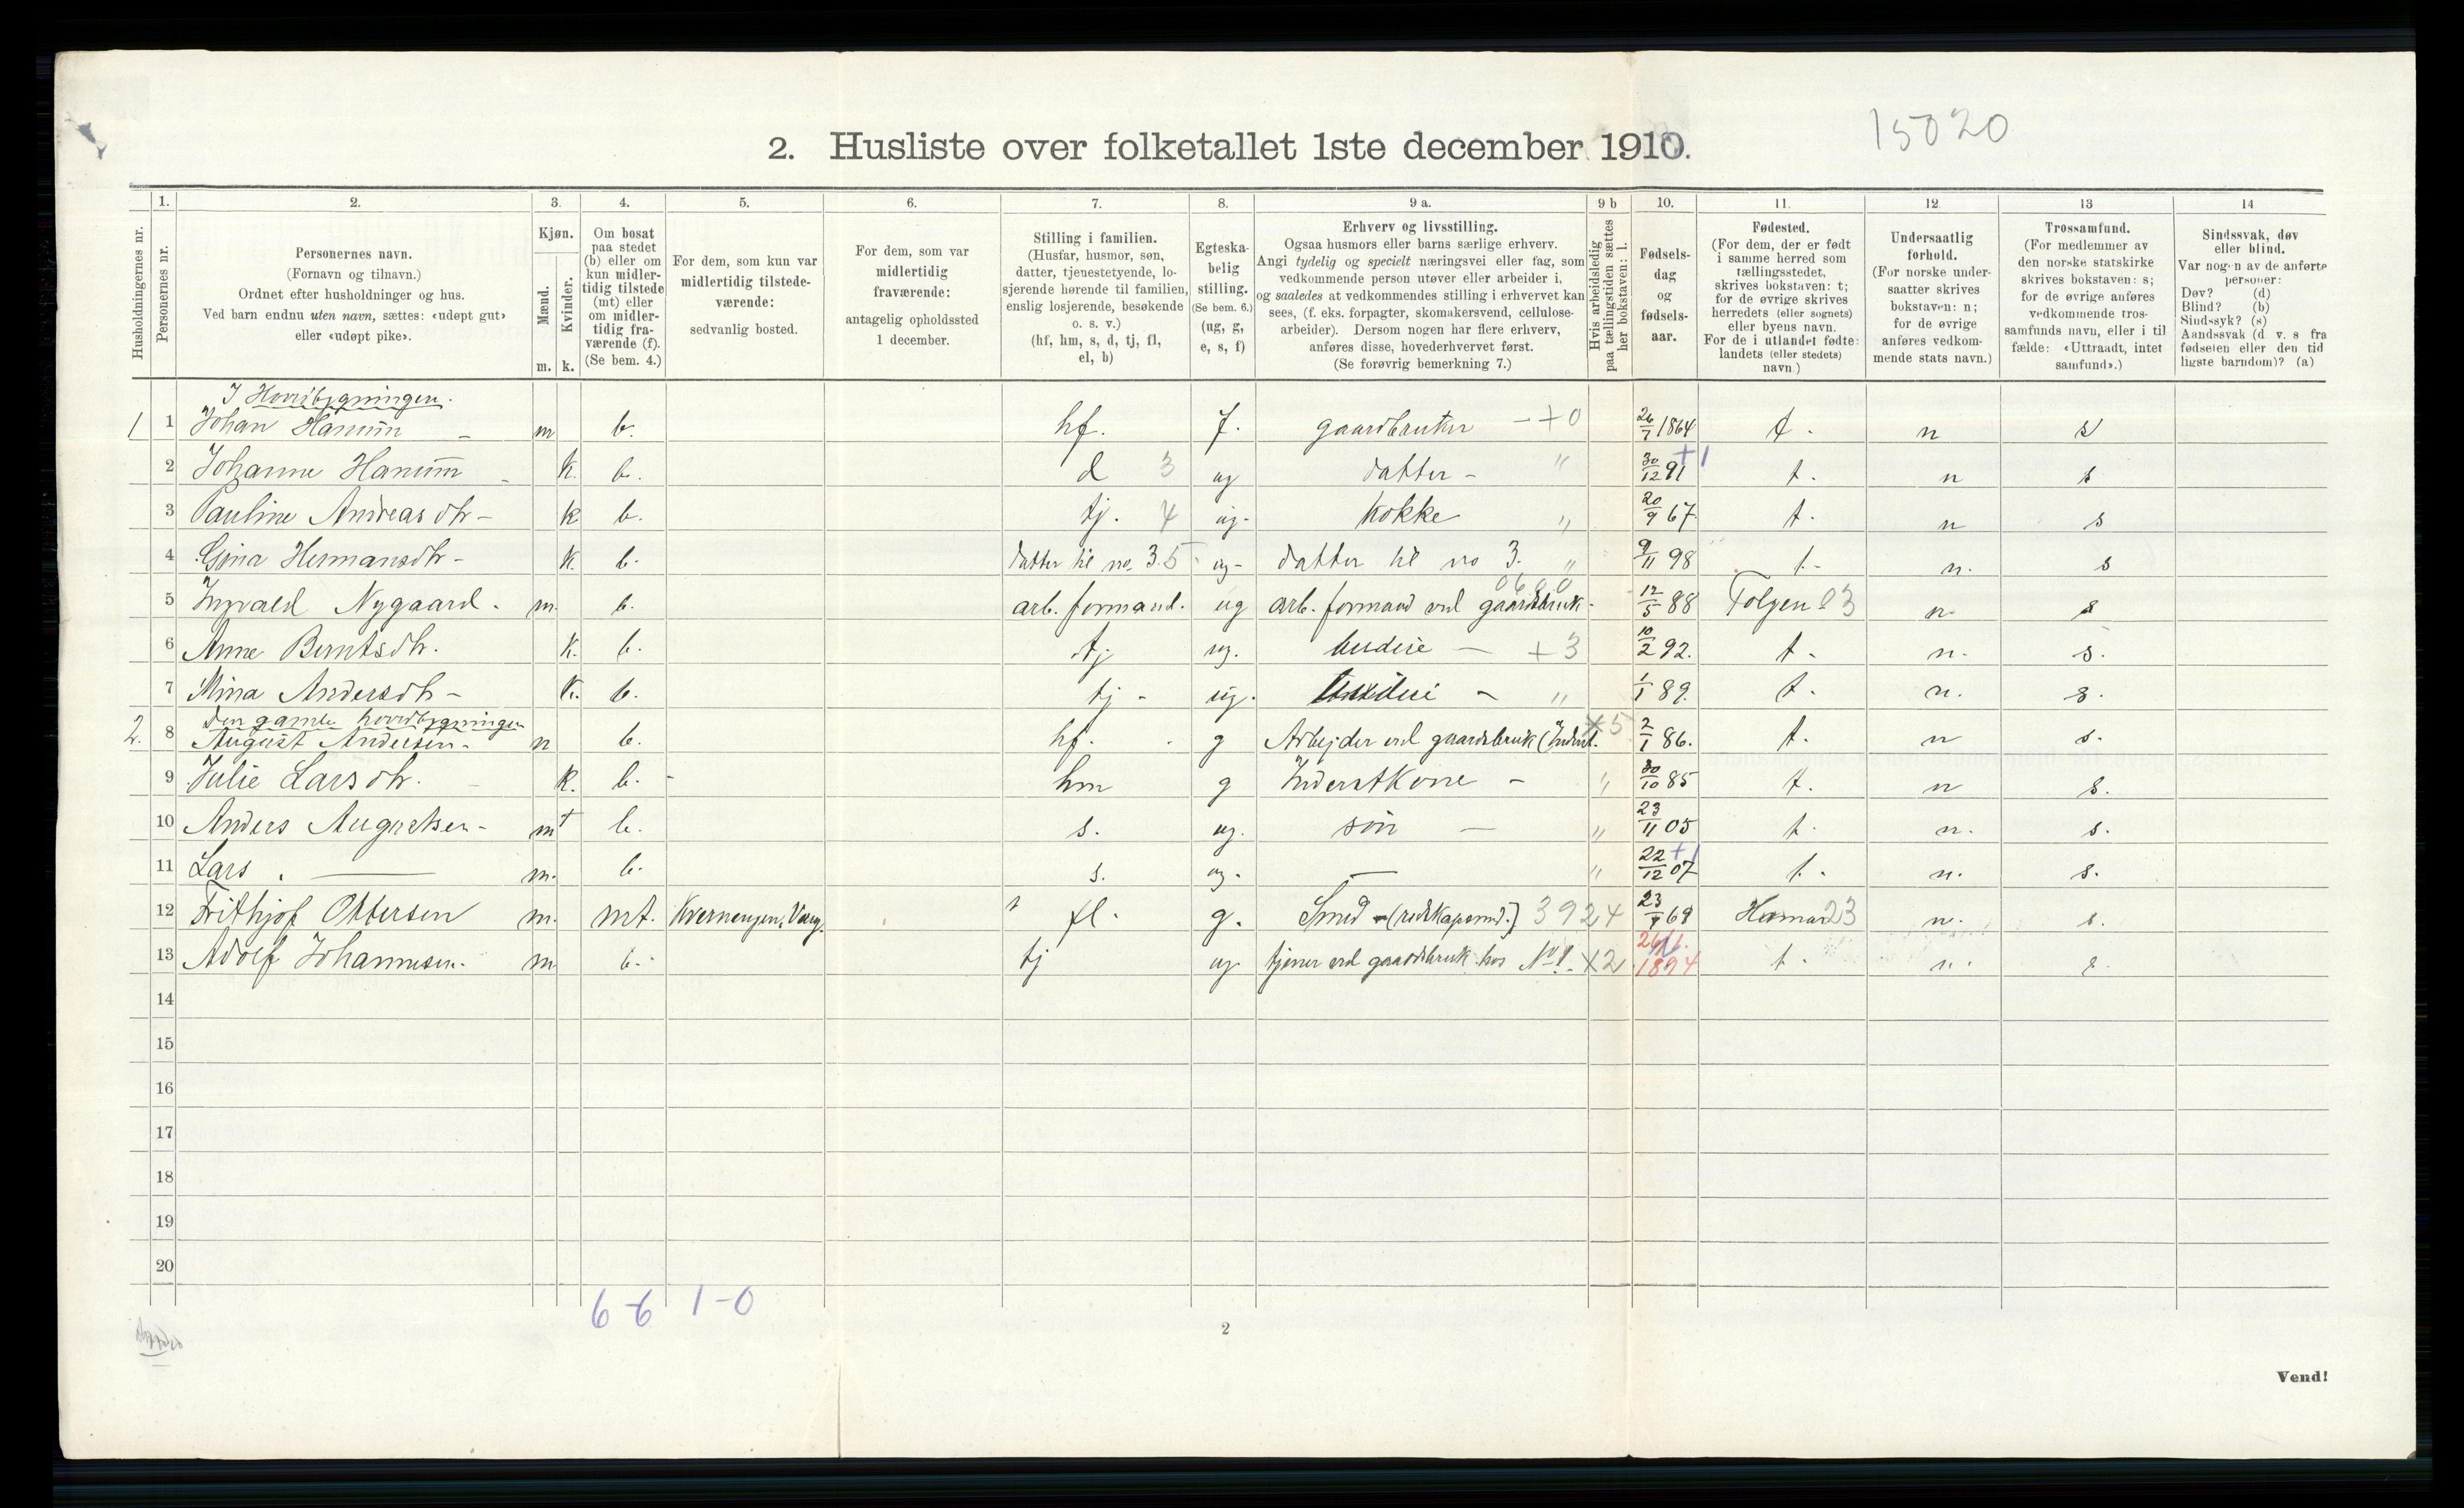 15020
2. Husliste over folketallet 1ste december 1910.
Husholdningernes nr.
1. Personernes nr.
2. Personernes navn.
(Fornavn og tilnavn.)
Ordnet efter husholdninger og hus.
Ved barn endnu uten navn, sættes: «udøpt gut»
eller «udøpt pike».
3. Kjøn.
Mænd. Kvinder.
m. k.
4. Om bosat
paa stedet
(b) eller om
kun midler-
tidig tilstede
(mt) eller
om midler-
tidig fra-
værende (f).
(Se bem. 4.)
5. For dem, som kun var
midlertidig tilstede-
værende:
sedvanlig bosted.
6. For dem, som var
midlertidig
fraværende:
antagelig opholdssted
1 december.
7. Stilling i familien.
(Husfar, husmor, søn,
datter, tjenestetyende, lo-
sjerende hørende til familien,
enslig losjerende, besøkende
o. s. v.)
(hf, hm, s, d, tj, fl,
el, b)
8. Egteska-
belig
stilling.
(Se bem. 6.)
(ug, g,
e, s, f)
9 a. Erhverv og livsstilling.
Ogsaa husmors eller barns særlige erhverv.
Angi tydelig og specielt næringsvei eller fag, som
vedkommende person utøver eller arbeider i,
og saaledes at vedkommendes stilling i erhvervet kan
sees, (f. eks. forpagter, skomakersvend, cellulose-
arbeider). Dersom nogen har flere erhverv,
anføres disse, hovederhvervet først.
(Se forøvrig bemerkning 7.)
9 b Hvis arbeidsledig
paa tællingstiden sættes
her bokstaven: l.
10. Fødsels-
dag
og
fødsels-
aar.
11. Fødested.
(For dem, der er født
i samme herred som
tællingsstedet,
skrives bokstaven: t;
for de øvrige skrives
herredets (eller sognets)
eller byens navn.
For de i utlandet fødte:
landets (eller stedets)
navn.)
12. Undersaatlig
forhold.
(For norske under-
saatter skrives
bokstaven: n;
for de øvrige
anføres vedkom-
mende stats navn.)
13 Trossamfund.
(For medlemmer av
den norske statskirke
skrives bokstaven: s;
for de øvrige anføres
vedkommende tros-
samfunds navn, eller i til
fælde: «Uttraadt, intet
samfund».)
14 Sindssvak, døv
eller blind.
Var nogen av de anførte
personer:
Døv? (d)
Blind? (b)
Sindssyk? (s)
Aandssvak (d v. s fra
fødselen eller den tid
ligste barndom)? (a)
I Hovedbygningen.
1 1 Johan Hanum - m b. hf. f. gaardbruker - +0 26/7 1864 t. n s
2 Johanne Hanum - K. b. d 3 ug datter - " 30/12 91 +1 t. n s
3 Pauline Andreasdtr - K b. tj. 4 ug. Kokke " 20/9 67 t. n s
4 Gina Hermansdtr - K. b. datter til no. 3. 5 ug - datter til no 3. " 9/11 98 t - n. s
5 Ingvald Nygaard. m. b. arb. formand. ug arb. formand ved gaardsbruk. 0600 12/5 88 Tolgen 03 n. s
6 Anne Berntsdtr. K. b. tj ug. budeie - +3 10/2 92. t. n. s.
7 Mina Andersdtr - K. b. tj - ug. budeie - " 1/1 89. t. n. s.
Den gamle hovedbygningen
2. 8 August Andersen. m b. hf. g Arbejder ved gaardsbruk (Inderst. +5 2/1 86. t. n s.
9 Julie Larsdtr. K. b. - hm g Inderstkone - " 30/10 85 t. n s.
10 Anders Augustsen - m t b. s. ug. søn - " 23/11 05 t. n. s.
11 Lars. — m. b. s. ug. — " 22/12 07 +1 t. n. s.
12 Frithjof Ottersen m. mt. Kvernengen, Vang. fl. g. Smed - (redskapsmd.) 3924 23/ 69 Hamar 23 n. s.
13 Adolf Johannesen. m b. tj ug. tjener ved gaardsbruk hos No 1. +2 1894 t. n. s.
14
15
16
17
18
19
20
6-6 1-0
2
Vend!